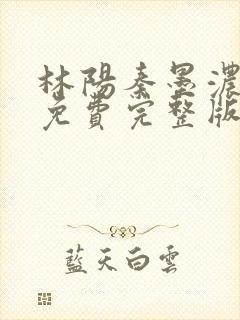 林陽秦墨濃
免費完整版
藍天白雲